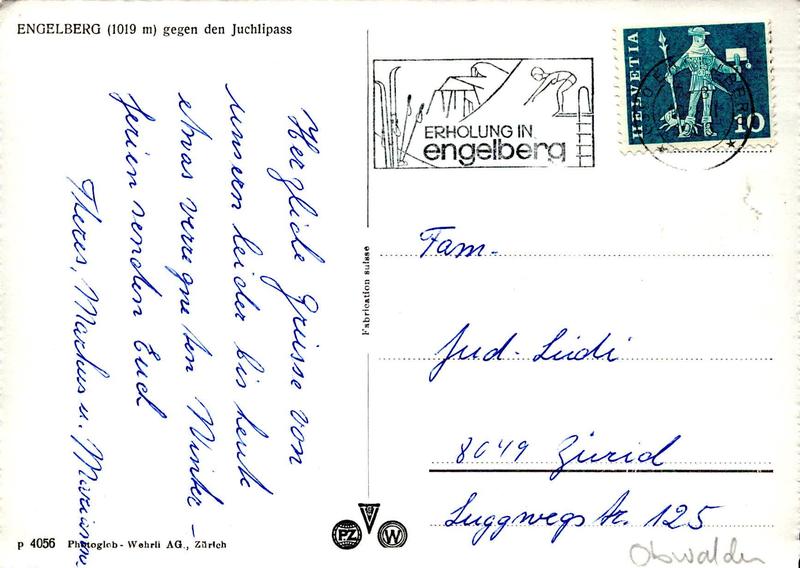 ENGELBERG (1019 m) gegen den Juchlipass
Herzliche Grüsse von
unsern leider bis heute
etwas verregneten Winter-
ferien senden Euch
Theres, Markus u. Marianne
p 4056 Photoglob-Wehrli AG., Zürich
Fabrication suisse
PZ
W
ERHOLUNG IN
engelberg
HELVETIA
10
Fam.
Jud-Lüdi
8049 Zürich
Luggwegstr. 125
Obwalden